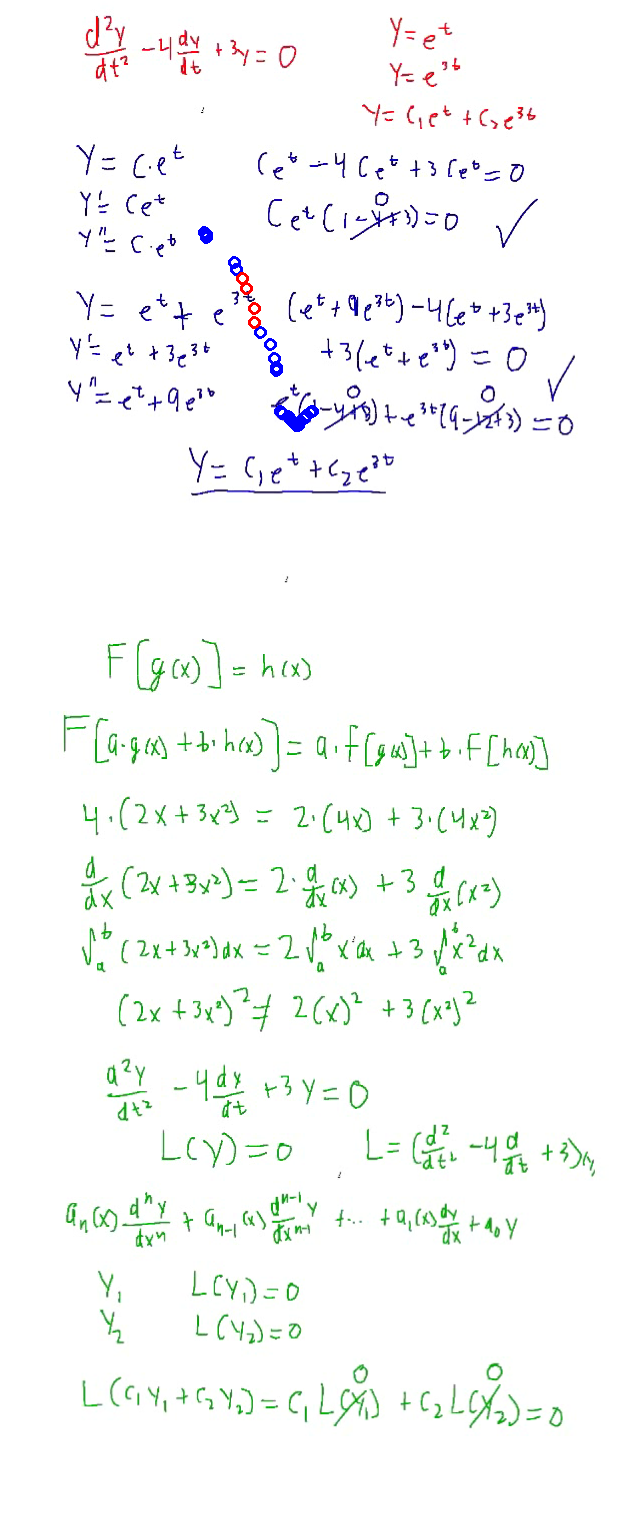 d²y/dt² - 4 dy/dt + 3y = 0
y = e^t
y = e^{3t}
y = c₁e^t + c₂e^{3t}
y = c·e^t
y' = ce^t
y'' = c·e^t
ce^t - 4ce^t + 3ce^t = 0
ce^t(1-4+3) = 0 ✓
0
y = e^t + e^{3t}
y' = e^t + 3e^{3t}
y'' = e^t + 9e^{3t}
(e^t + 9e^{3t}) - 4(e^t + 3e^{3t})
+ 3(e^t + e^{3t}) = 0 ✓
0 0
e^t(1-4+3) + e^{3t}(9-12+3) = 0
y = c₁e^t + c₂e^{3t}
F[g(x)] = h(x)
F[a·g(x) + b·h(x)] = a·F[g(x)] + b·F[h(x)]
4·(2x + 3x²) = 2·(4x) + 3·(4x²)
d/dx (2x + 3x²) = 2·d/dx(x) + 3 d/dx(x²)
∫_a^b (2x + 3x²)dx = 2∫_a^b x dx + 3∫_a^b x² dx
(2x + 3x²)² ≠ 2(x)² + 3(x²)²
d²y/dt² - 4 dy/dt + 3y = 0
L(y) = 0 L = (d²/dt² - 4 d/dt + 3)
a_n(x) dⁿy/dxⁿ + a_{n-1}(x) d^{n-1}y/dx^{n-1} + ... + a₁(x) dy/dx + a₀y
y₁ L(y₁) = 0
y₂ L(y₂) = 0
0 0
L(c₁y₁ + c₂y₂) = c₁L(y₁) + c₂L(y₂) = 0